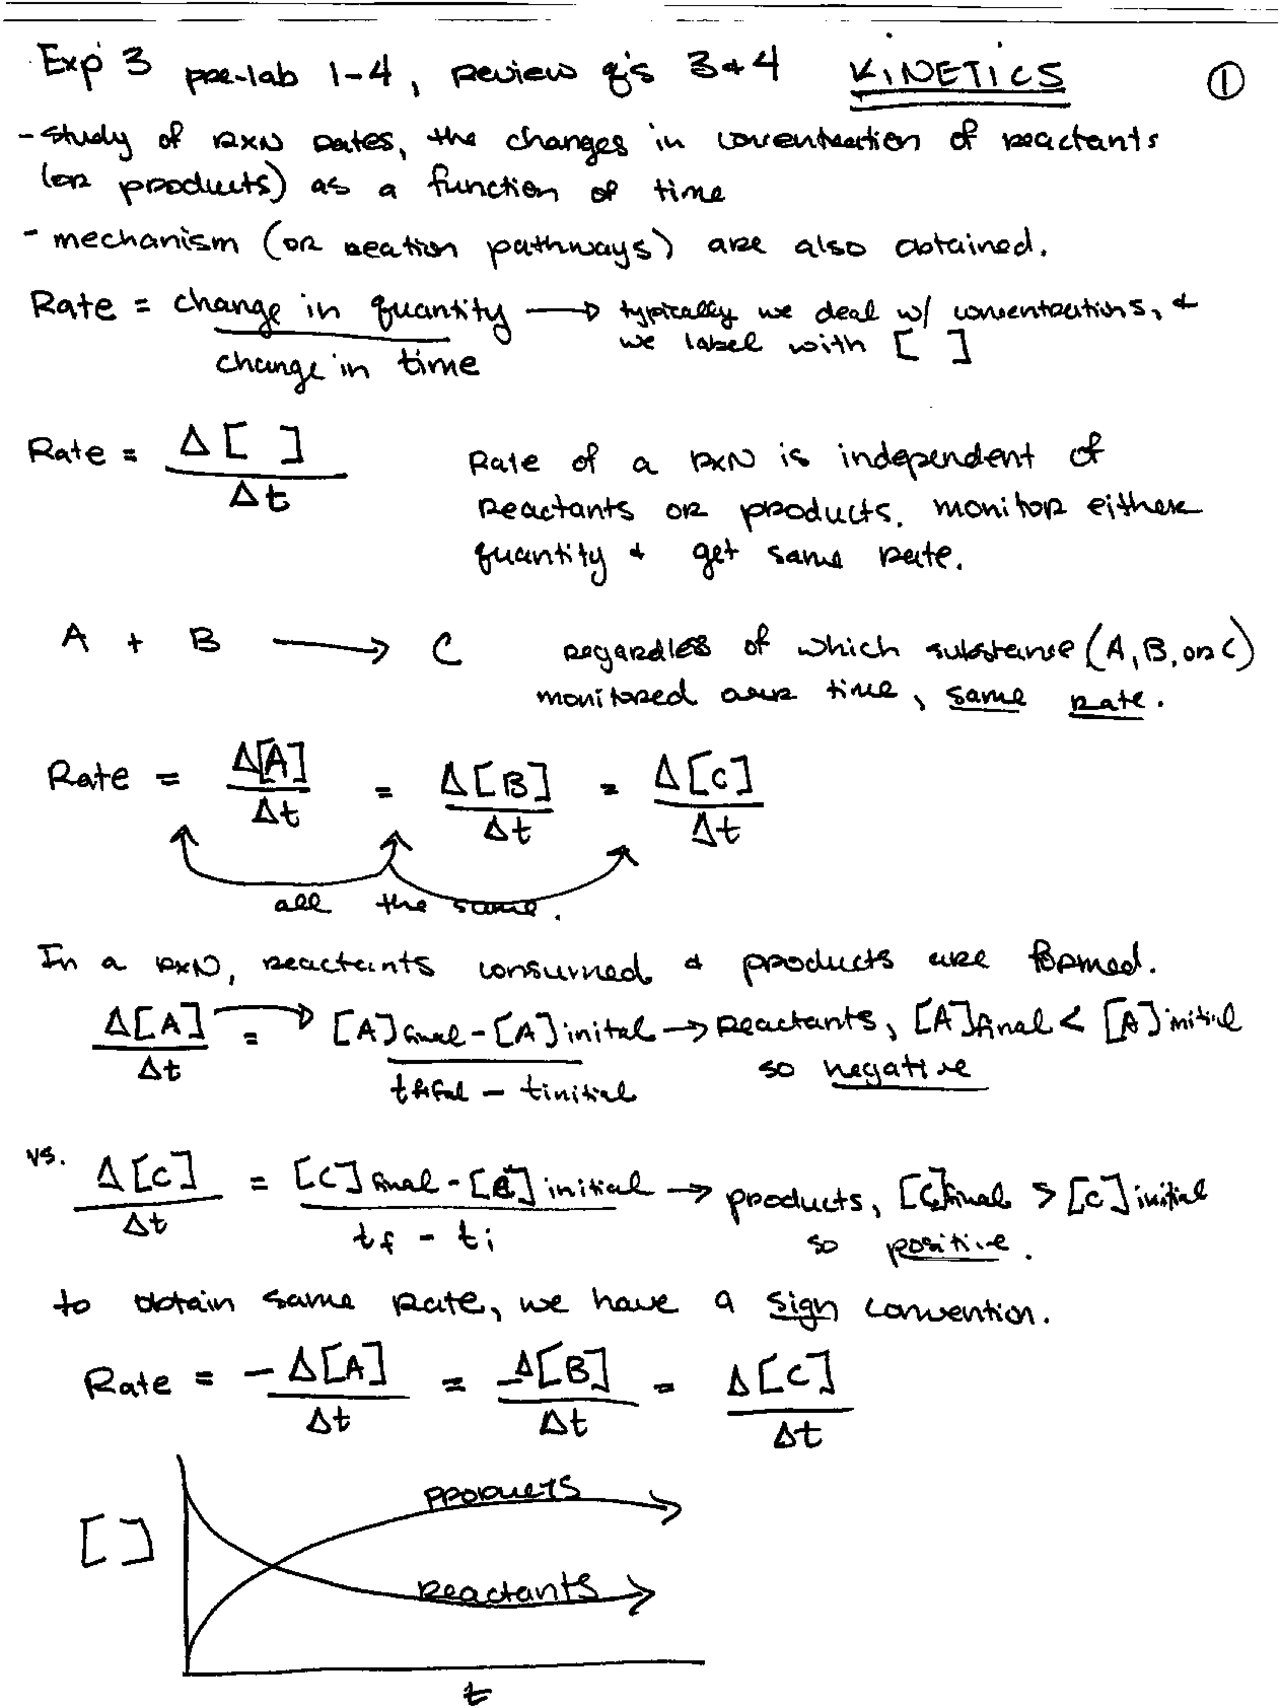 Exp 3 pre-lab 1-4, review q's 3+4 KINETICS ①
- study of rxn rates, the changes in concentration of reactants
(or products) as a function of time
- mechanism (or reation pathways) are also obtained.
Rate = change in quantity → typically we deal w/ concentrations, +
change in time we label with [ ]
Rate = Δ[ ] / Δt
Rate of a rxn is independent of
reactants or products. monitor either
quantity + get same rate.
A + B → C regardless of which substance (A, B, or C)
monitored over time, same rate.
Rate = Δ[A]/Δt = Δ[B]/Δt = Δ[C]/Δt
all the same.
In a rxn, reactants consumed + products are formed.
Δ[A]/Δt = [A]final - [A]inital / tfinal - tinitial → reactants, [A]final < [A]initial
so negative
vs. Δ[C]/Δt = [C]final - [C]initial / tf - ti → products, [C]final > [C]initial
so positive.
to obtain same rate, we have a sign convention.
Rate = -Δ[A]/Δt = -Δ[B]/Δt = Δ[C]/Δt
products
[ ]
reactants
t